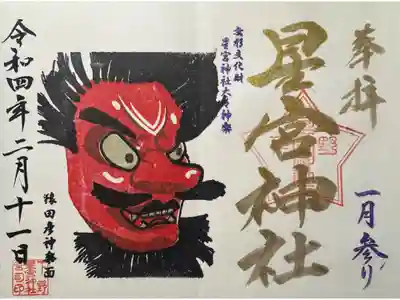 奉拝
星宮神社
一月参り
無形文化財
星宮神社太々神楽
猿田彦神楽面
令和四年二月十一日